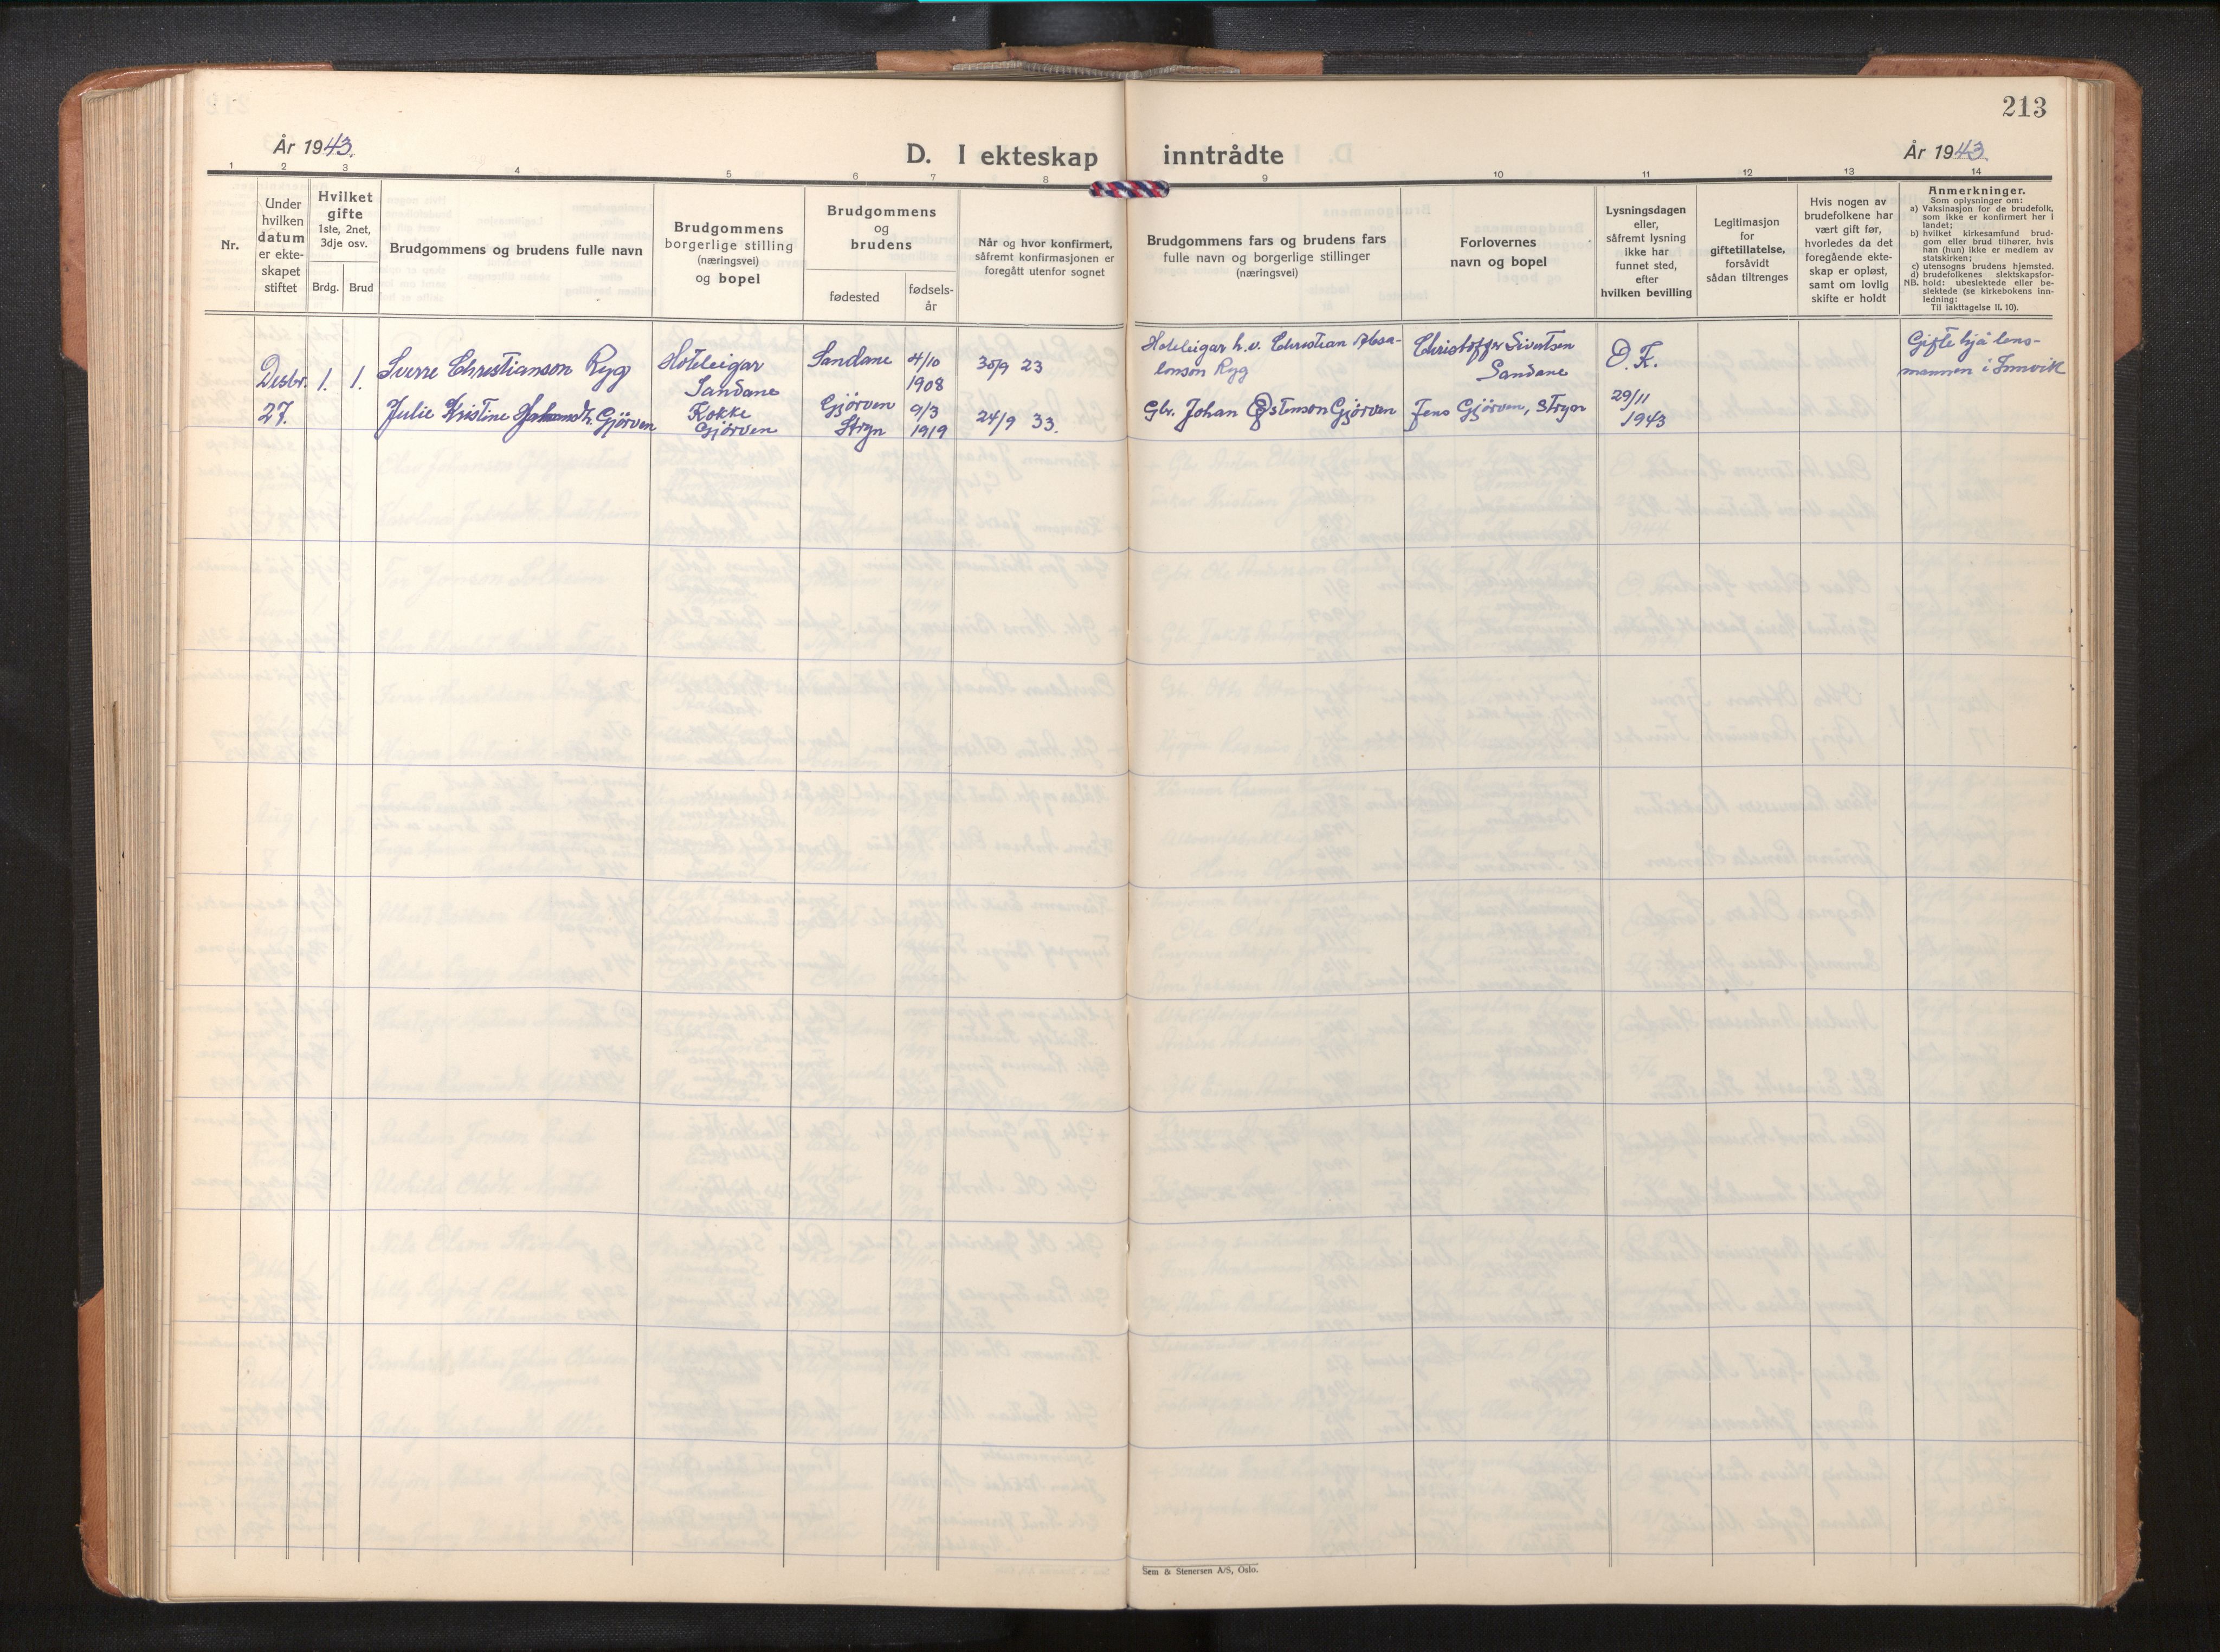 213
År 1943.
D. I ekteskap inntrådte
År 1943.
1 2 3 4 5 6 7 8 9 10 11 12 13 14
Nr.
Under
hvilken
datum
er ekte-
skapet
stiftet
Hvilket
gifte
1ste, 2net,
3dje osv.
Brdg. Brud
Brudgommens og brudens fulle navn
Brudgommens
borgerlige stilling
(næringsvei)
og bopel
Brudgommens
og
brudens
fødested
fødsels-
år
Når og hvor konfirmert,
såfremt konfirmasjonen er
foregått utenfor sognet
Brudgommens fars og brudens fars
fulle navn og borgerlige stillinger
(næringsvei)
Forlovernes
navn og bopel
Lysningsdagen
eller,
såfremt lysning
ikke har
funnet sted,
efter
hvilken bevilling
Legitimasjon
for
giftetillatelse,
forsåvidt
sådan tiltrenges
Hvis nogen av
brudefolkene har
vært gift før,
hvorledes da det
foregående ekte-
skap er opløst,
samt om lovlig
skifte er holdt
Anmerkninger.
Som oplysninger om:
a) Vaksinasjon for de brudefolk,
som ikke er konfirmert her i
landet;
b) hvilket kirkesamfund brud-
gom eller brud tilhører, hvis
han (hun) ikke er medlem av
statskirken;
c) utensogns brudens hjemsted.
d) brudefolkenes slektskapsfor-
NB. hold: ubeslektede eller be-
slektede (se kirkebokens inn-
ledning:
Til iakttagelse II. 10).
Desbr.
27.
1. 1.
Sverre Christianson Ryg
Julie Kristine Johansdt. Gjörven
Hoteleigar
Sandane
Kokke
Gjörven
Sandane
Gjörven
Stryn
4/10
1908
9/3
1919
30/9 23
24/9 33.
Hoteleigar h.v. Christian Absa-
lonson Ryg
Gbr. Johan Östenson Gjörven
Christoffer Sivertsen
Sandane
Jens Gjörven, Stryn
O. K.
29/11
1943
Gifte hjå lens-
mannen i Innvik
Sem & Stenersen A/S, Oslo.